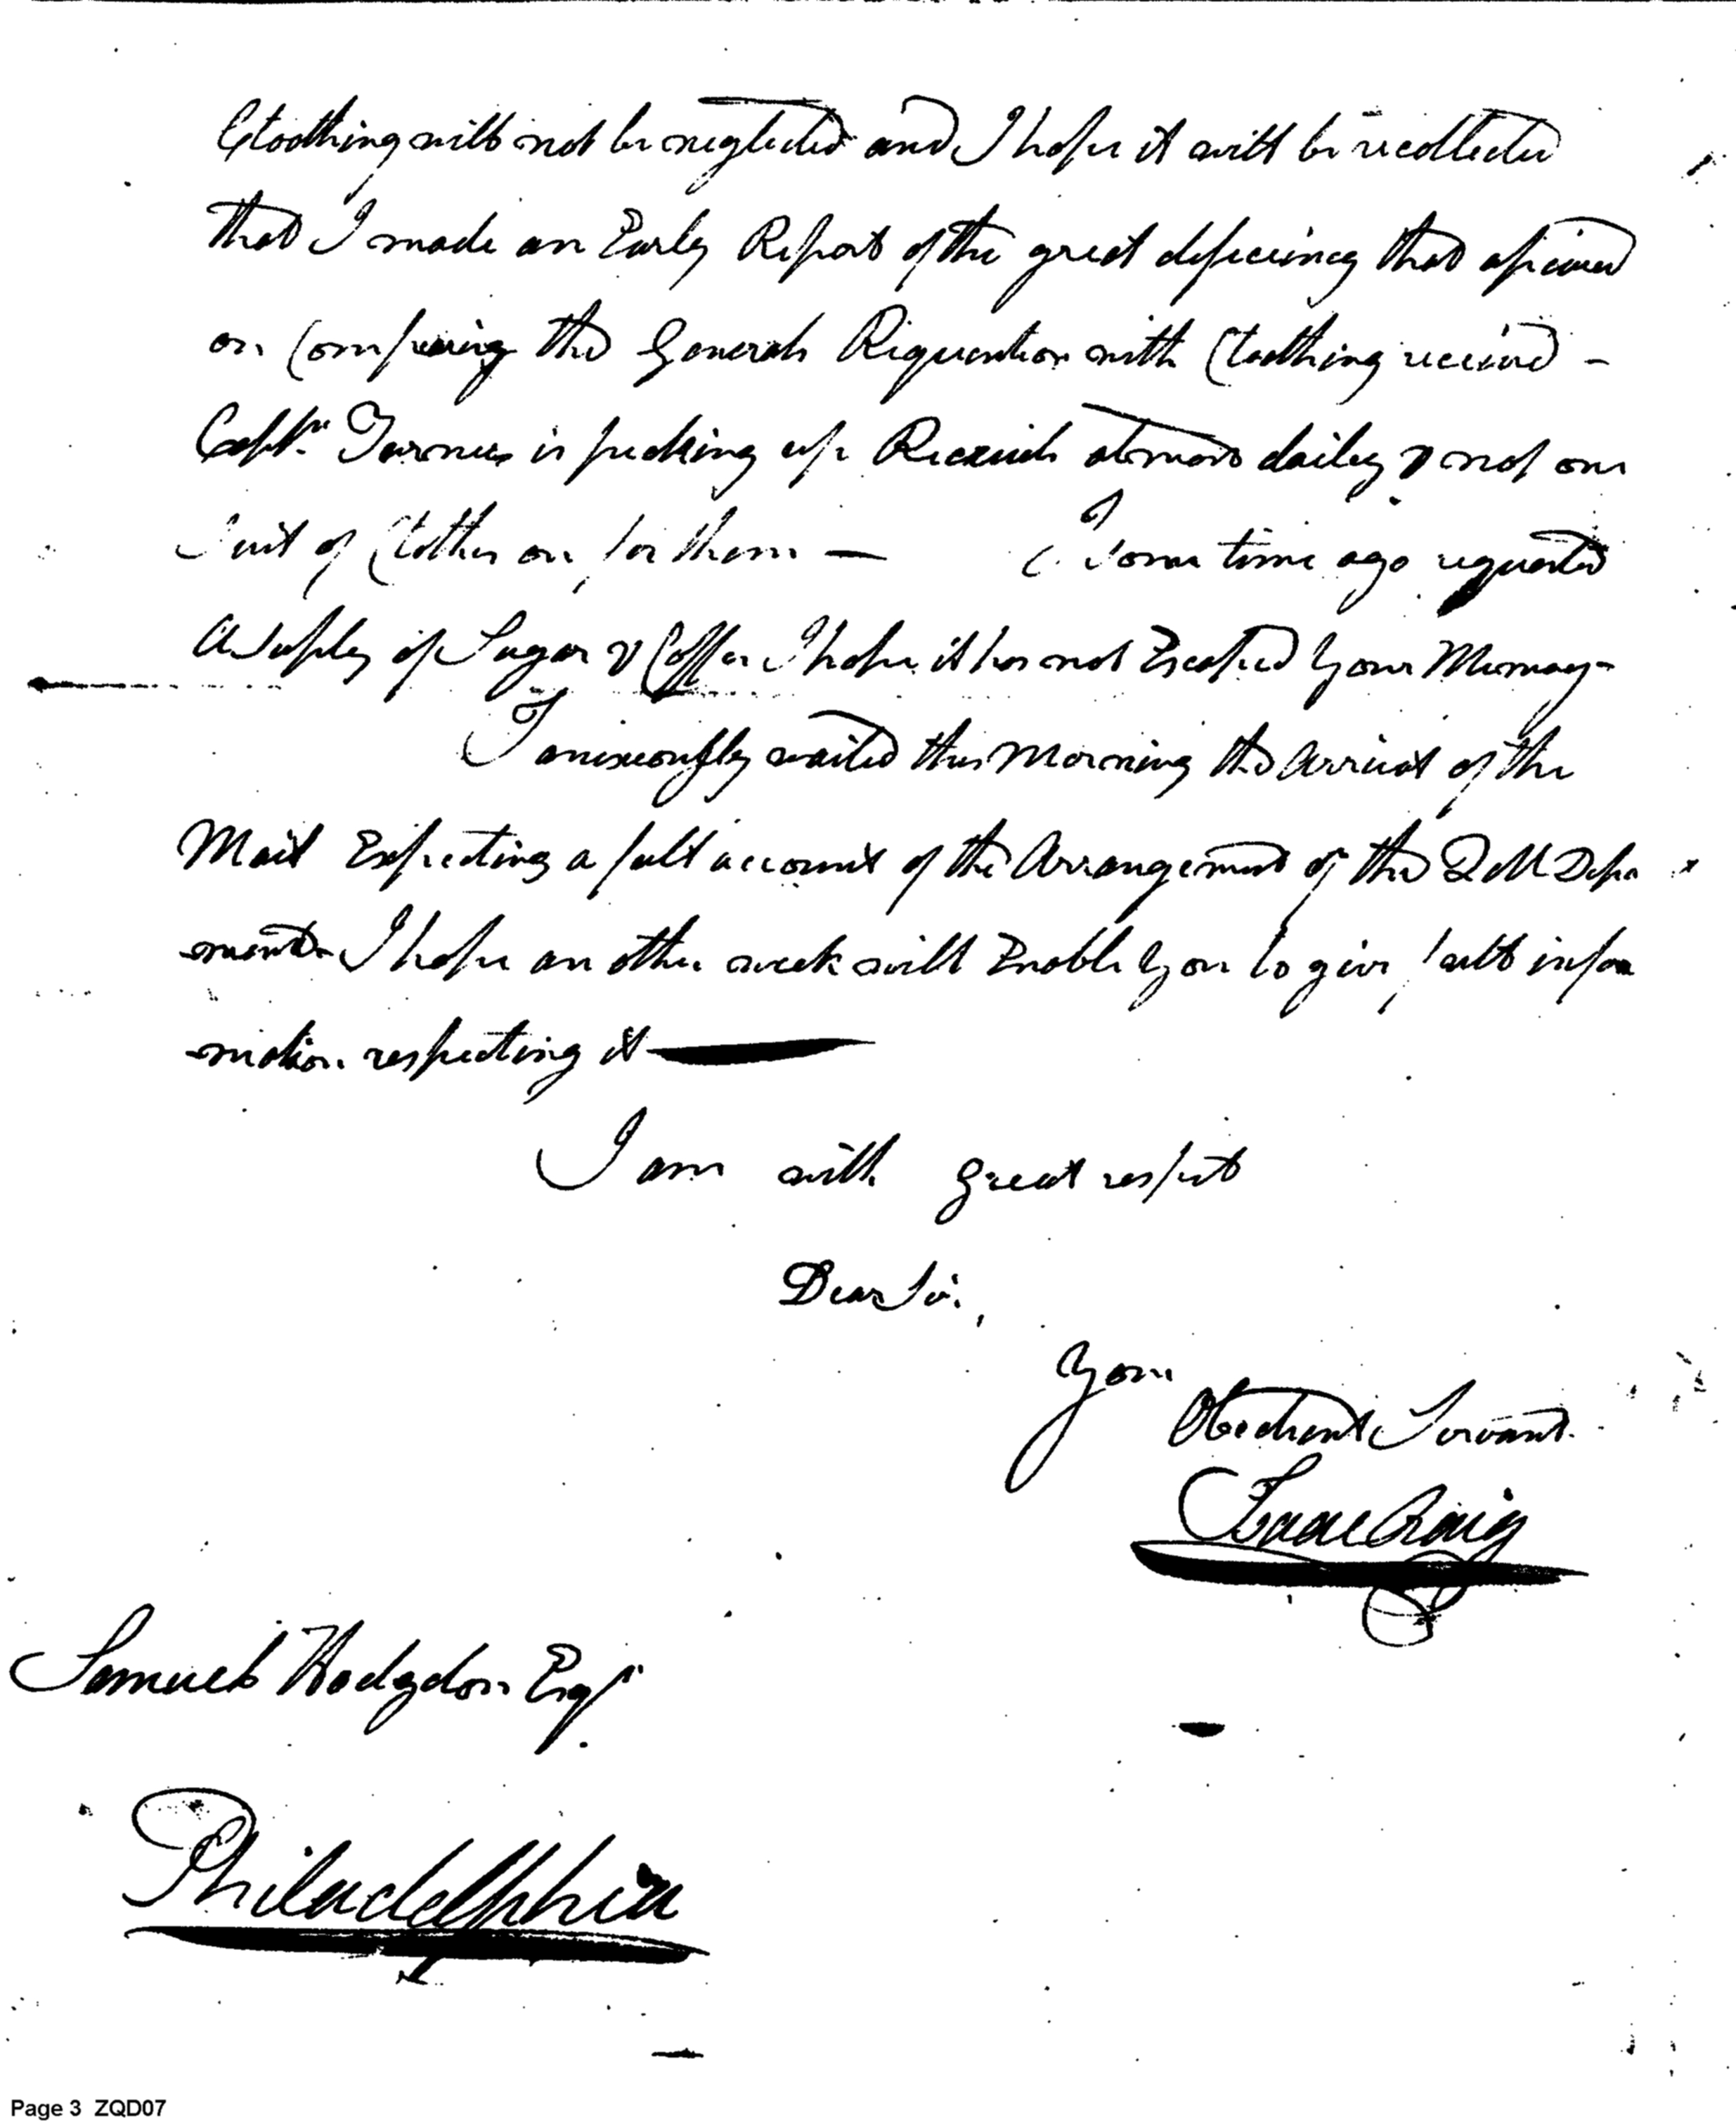 Cloothing will not be neglected and I hope it will be recollected
that I made an Early Report of the great deficiency that apeared
on Compairing the Generals Requisition with Cloothing received -
Captn. Turner is picking up Recruits almost daily & not one
Suit of Cloths on for them — I Some time ago requested
a Suply of Sugar & Coffee I hope it has not Escaped your Memory -
I anxiously waited this Morning the arrival of the
Mail Expecting a full account of the Arrangement of the QM Depa
-ment - I hope an other week will Enable you to give full infor
-mation respecting it —
I am with great respect
Dear Sir,
your
Obedient Servant.
Isaac Craig
Samuel Hodgdon Esqr.
Philadelphia
Page 3 ZQD07